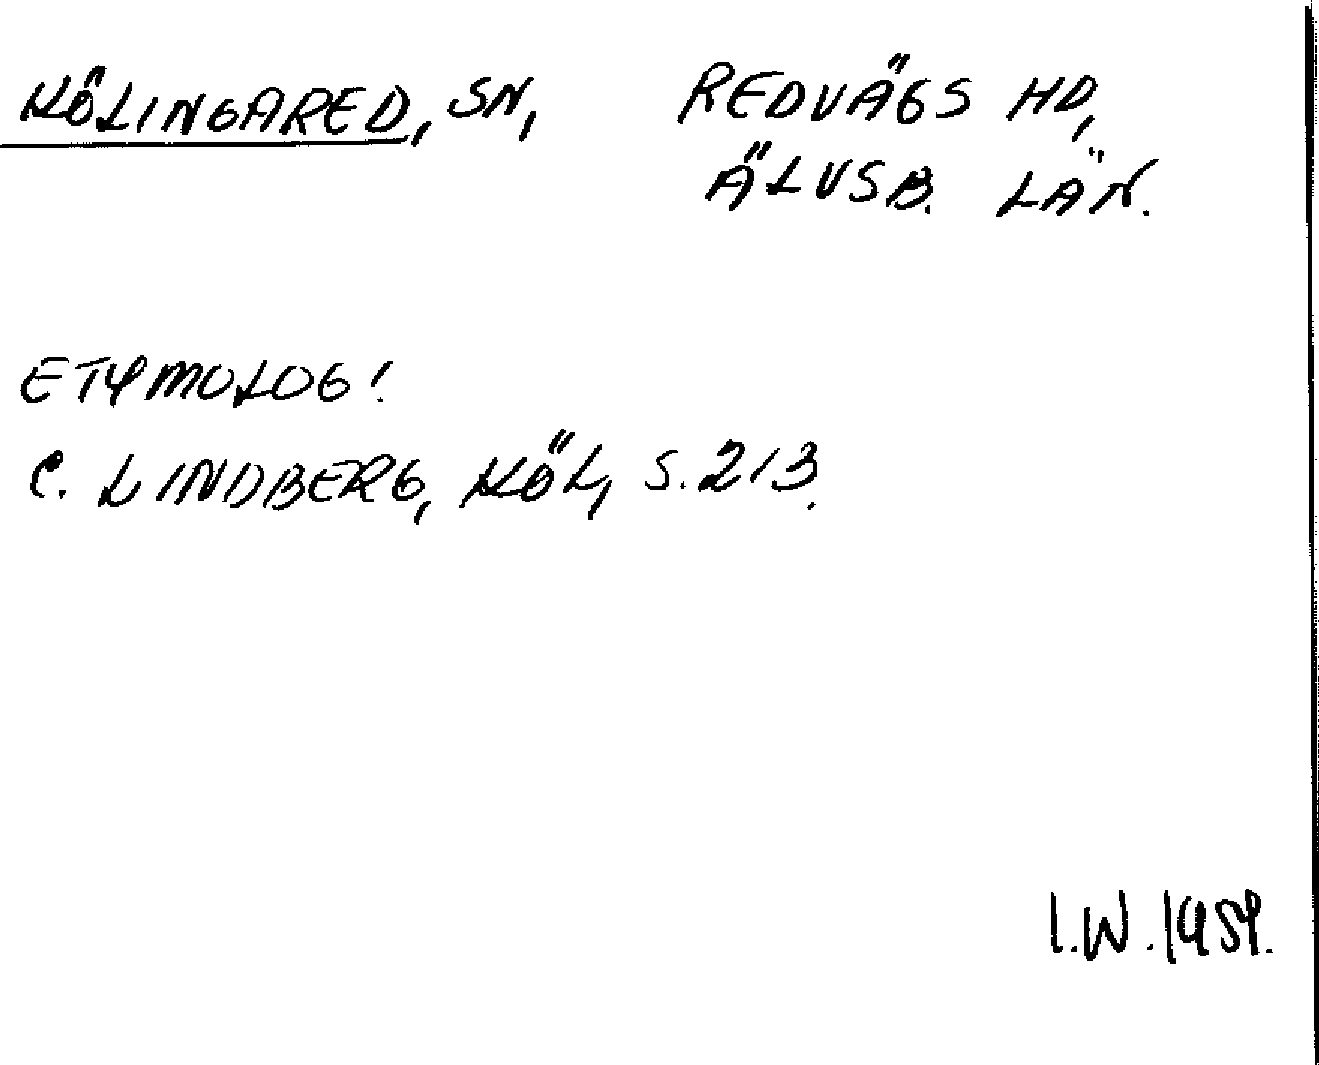 KÖLINGARED, SN, REDVÄGS HD,
ÄLVSB. LÄN.
ETYMOLOGI.
C. LINDBERG, KÖL, S. 213.
I.W. 1959.